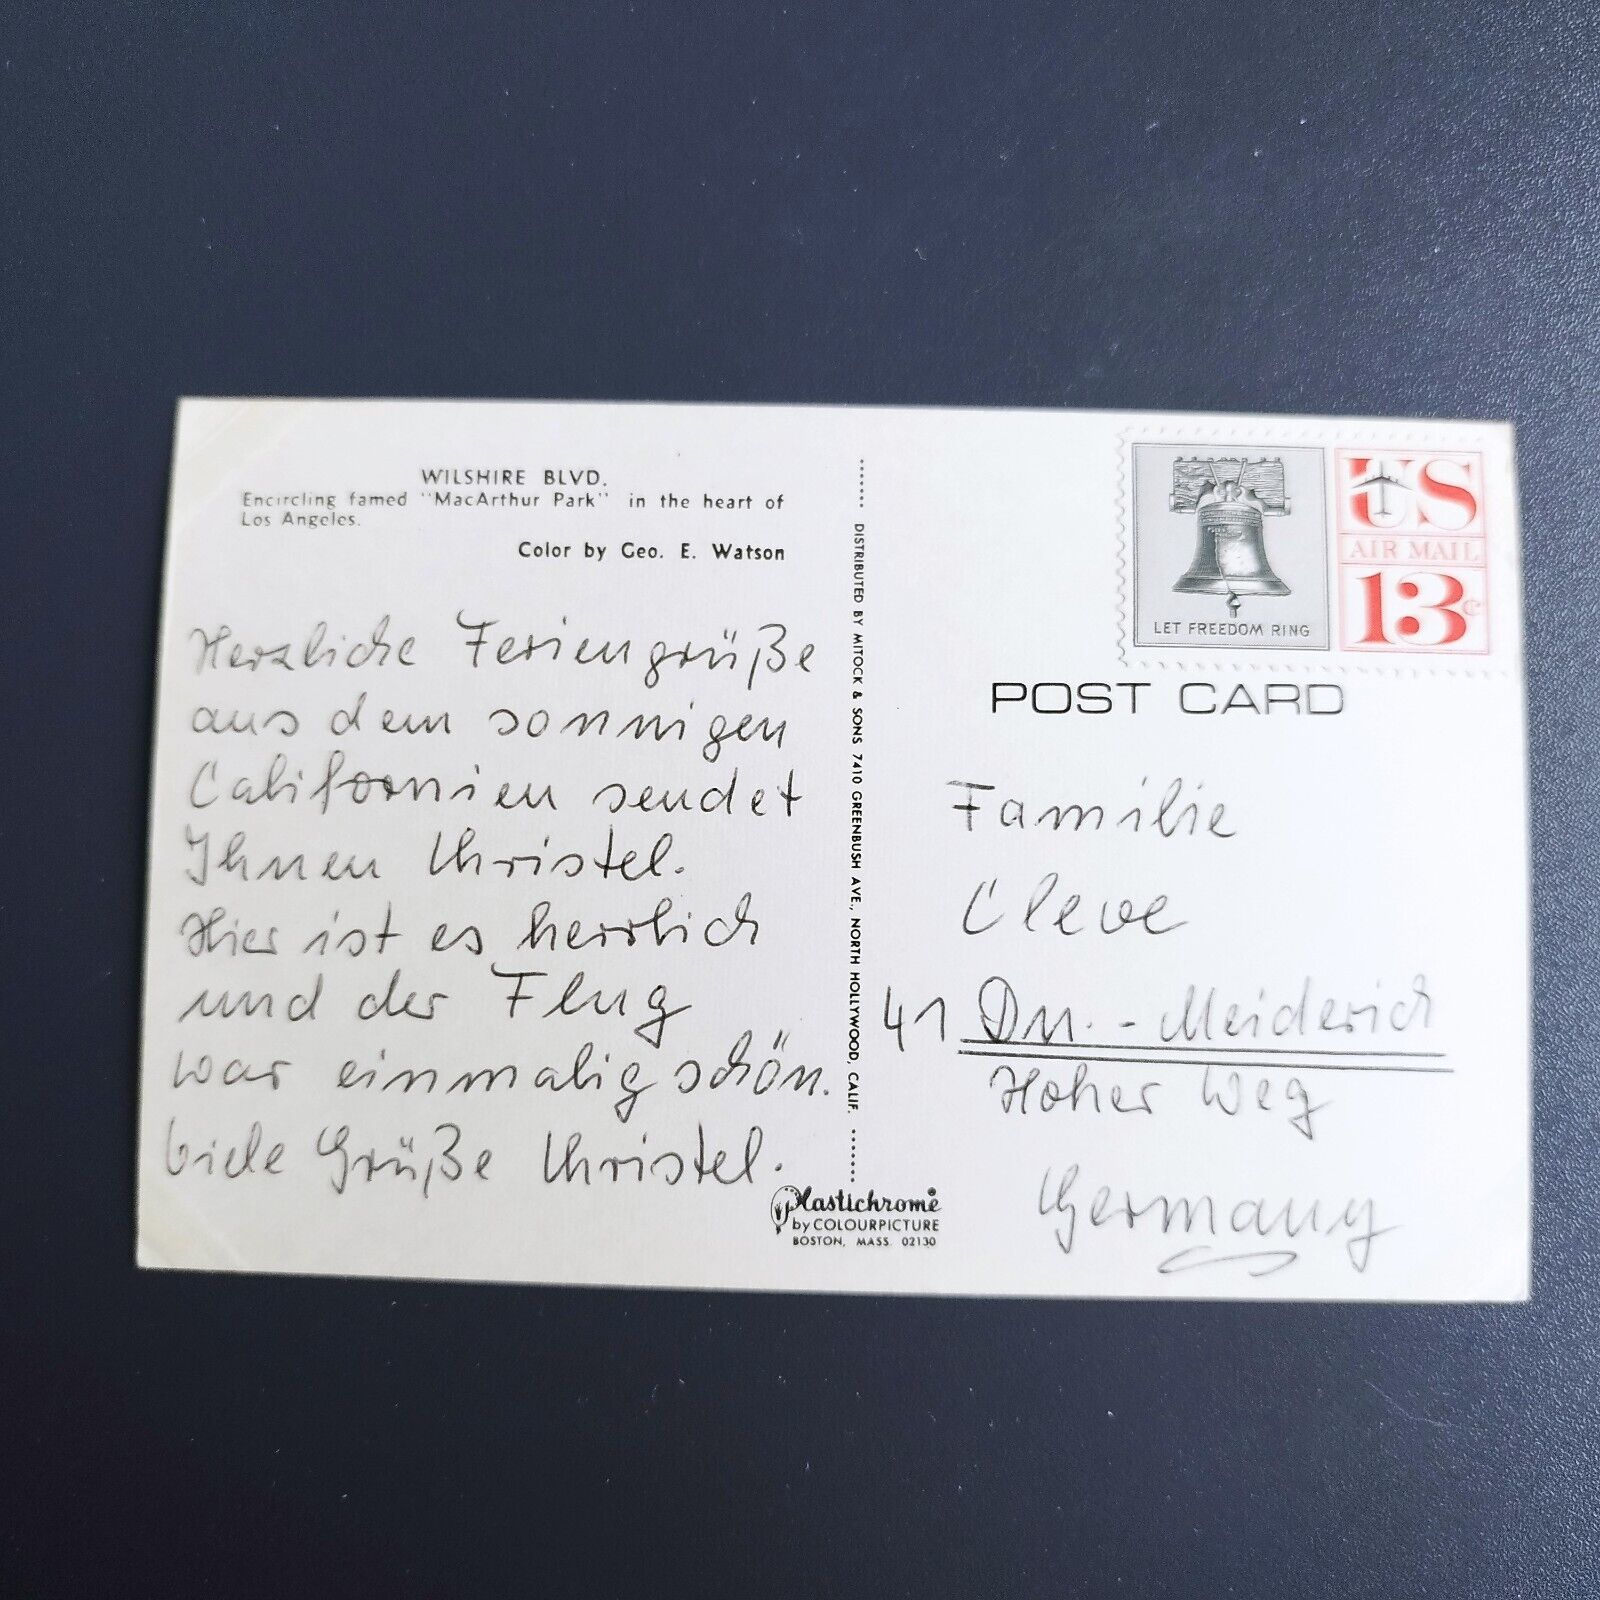 WILSHIRE BLVD.
Encircling famed "MacArthur Park" in the heart of
Los Angeles.
Color by Geo. E. Watson
Herzliche Feriengrüße
aus dem sonnigen
Californien sendet
Ihnen Christel.
Hier ist es herrlich
und der Flug
war einmalig schön.
Viele Grüße Christel.
DISTRIBUTED BY MITOCK & SONS 7410 GREENBUSH AVE., NORTH HOLLYWOOD, CALIF.
Plastichrome®
by COLOURPICTURE
BOSTON, MASS. 02130
LET FREEDOM RING
US
AIR MAIL
13c
POST CARD
Familie
Cleve
41 Du.-Meiderich
Hoher Weg
Germany